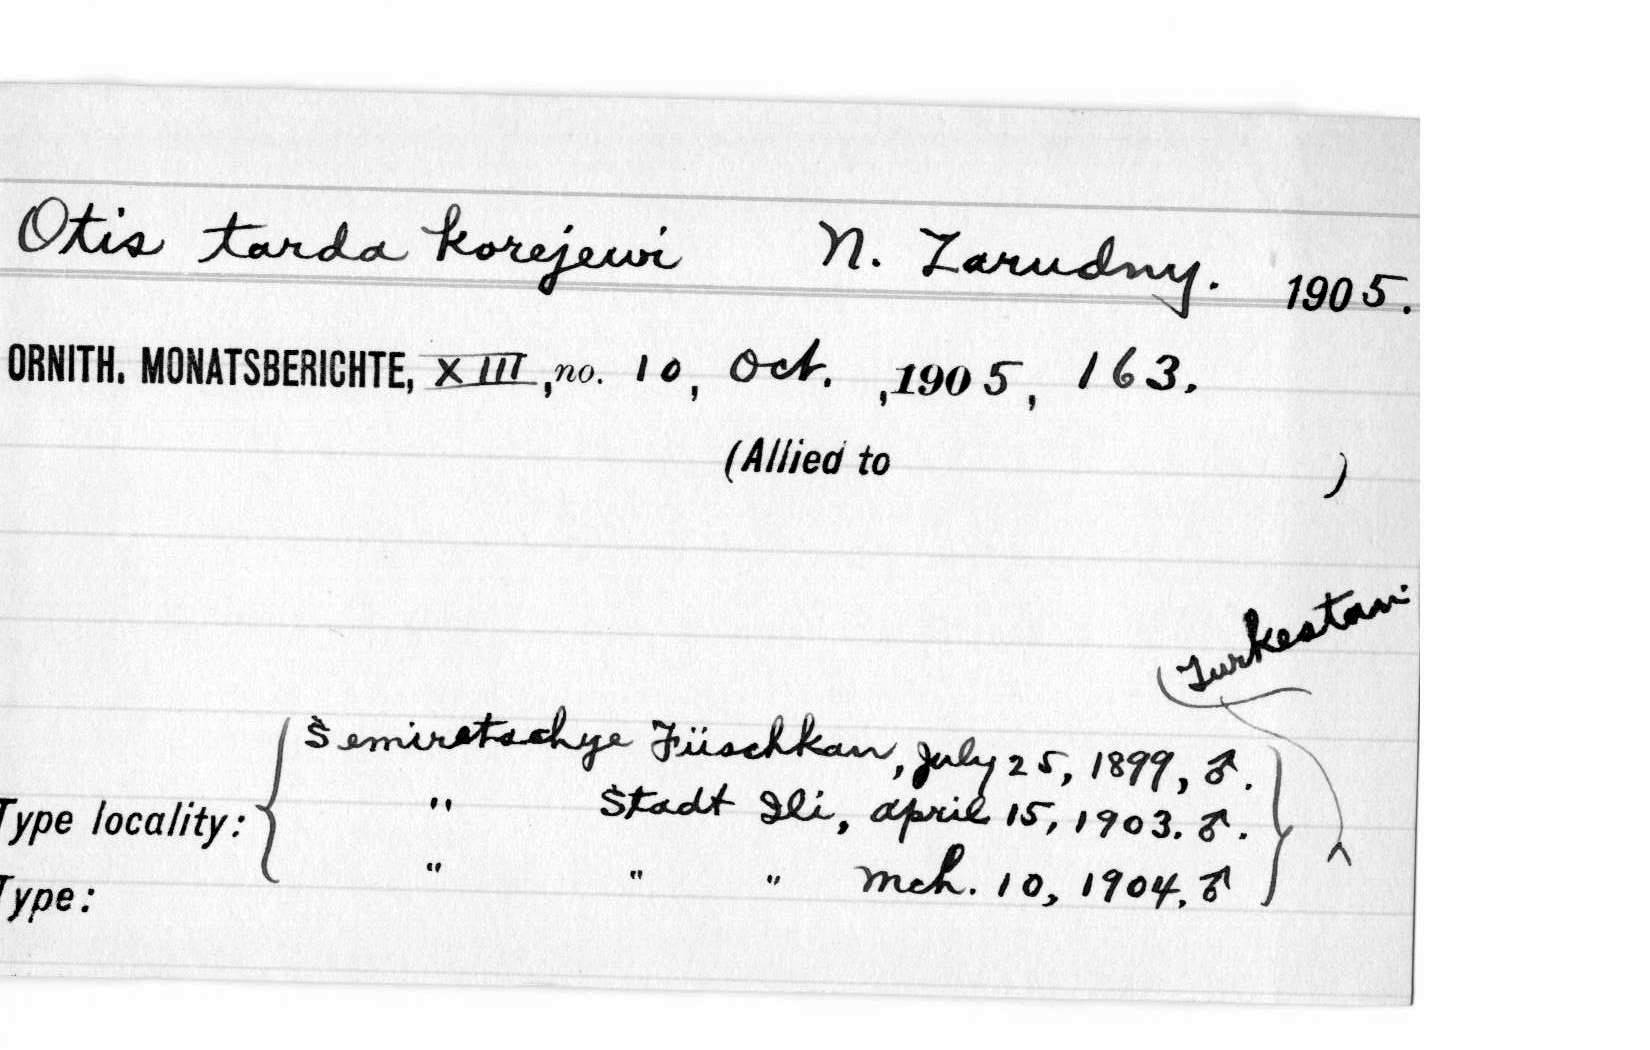 Otis tarda korejewi N. Zarudny. 1905.
ORNITH. MONATSBERICHTE, XIII, no. 10, Oct. , 1905, 163.
(Allied to )
Turkestan
Semiretschye Jüschkan, July 25, 1899, ♂.
Type locality: " Stadt Ili, april 15, 1903. ♂.
" " " mch. 10, 1904. ♂
Type: